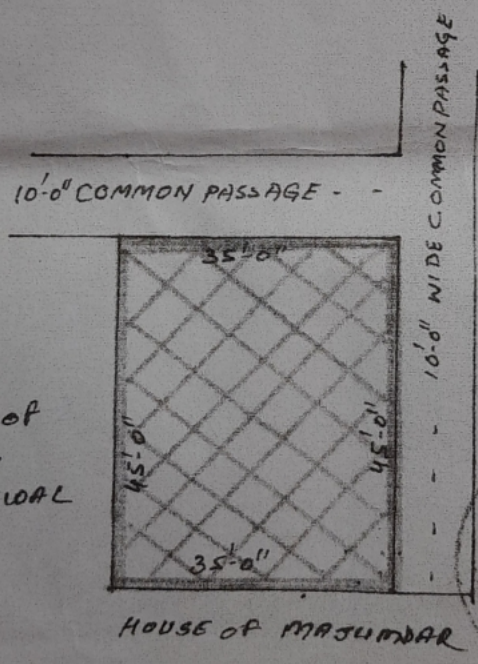 10'-0" COMMON PASSAGE - -
10'-0" WIDE COMMON PASSAGE - - - -
35'-0"
45'-0"
45'-0"
35'-0"
OF
HOUSE OF MAJUMDAR